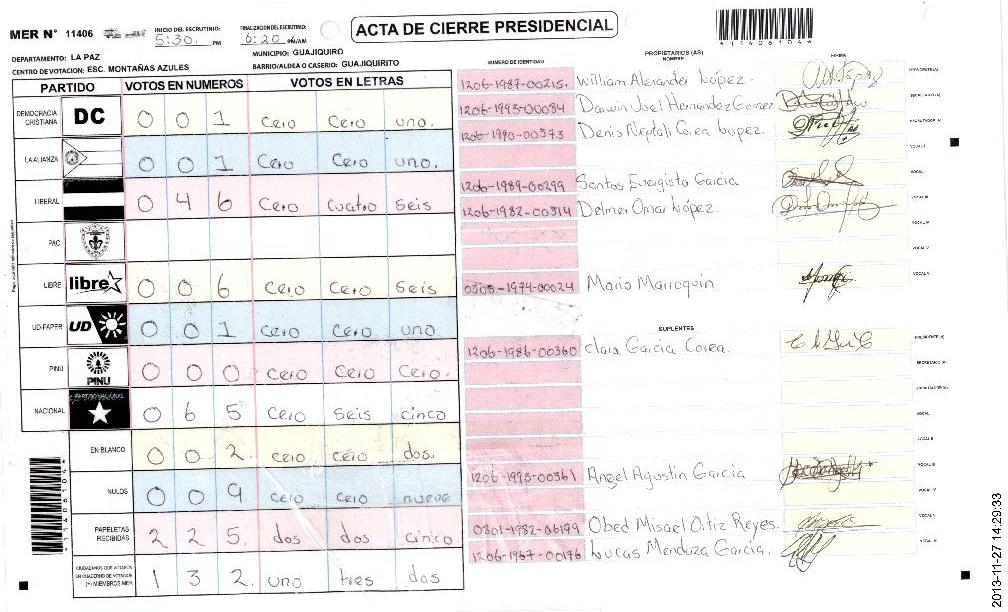 MER N° 11406
INICIO DEL ESCRUTINIO: 5:30. PM
FINALIZACION DEL ESCRUTINIO: 6:20 PM/AM
ACTA DE CIERRE PRESIDENCIAL
*11406104*
DEPARTAMENTO: LA PAZ
MUNICIPIO: GUAJIQUIRO
CENTRO DE VOTACION: ESC. MONTAÑAS AZULES
BARRIO/ALDEA O CASERIO: GUAJIQUIRITO
PARTIDO VOTOS EN NUMEROS VOTOS EN LETRAS
DEMOCRACIA CRISTIANA DC 0 0 1 cero cero uno.
LA ALIANZA 0 0 1 cero cero uno.
LIBERAL 0 4 6 cero cuatro seis
PAC
LIBRE libre 0 0 6 cero cero seis
UD-FAPER UD 0 0 1 cero cero uno
PINU PINU 0 0 0 cero cero cero.
NACIONAL 0 6 5 cero seis cinco
EN BLANCO 0 0 2. cero cero dos.
NULOS 0 0 9 cero cero nueve
PAPELETAS RECIBIDAS 2 2 5. dos dos cinco
CIUDADANOS QUE VOTARON EN CUADERNO DE VOTACION (+) MIEMBROS MER 1 3 2. uno tres dos
*11406104*
PROPIETARIOS (AS)
NUMERO DE IDENTIDAD NOMBRE FIRMA
1206-1987-00215. William Alexander López. PRESIDENTE(A)
1206-1993-00084 Darwin Joel Hernandez Gomez SECRETARIO(A)
1206-1990-00373 Denis Neptali Corea Lopez. ESCRUTADOR (A)
VOCAL I
1206-1989-00299 Santos Evergisto Garcia
1206-1982-00314 Delmer Omar López.
VOCAL IV
VOCAL V
0303-1974-00024 Mario Marroquin
SUPLENTES
1206-1986-00360 Clara Garcia Corea. PRESIDENTE (A)
SECRETARIO (A)
ESCRUTADOR (A)
VOCAL
VOCAL II
1206-1993-00361 Angel Agustin Garcia VOCAL III
VOCAL IV
0801-1982-06199 Obed Misael Ortiz Reyes. VOCAL V
1206-1967-00176 Lucas Mendoza Garcia.
2013-11-27 14:29:33